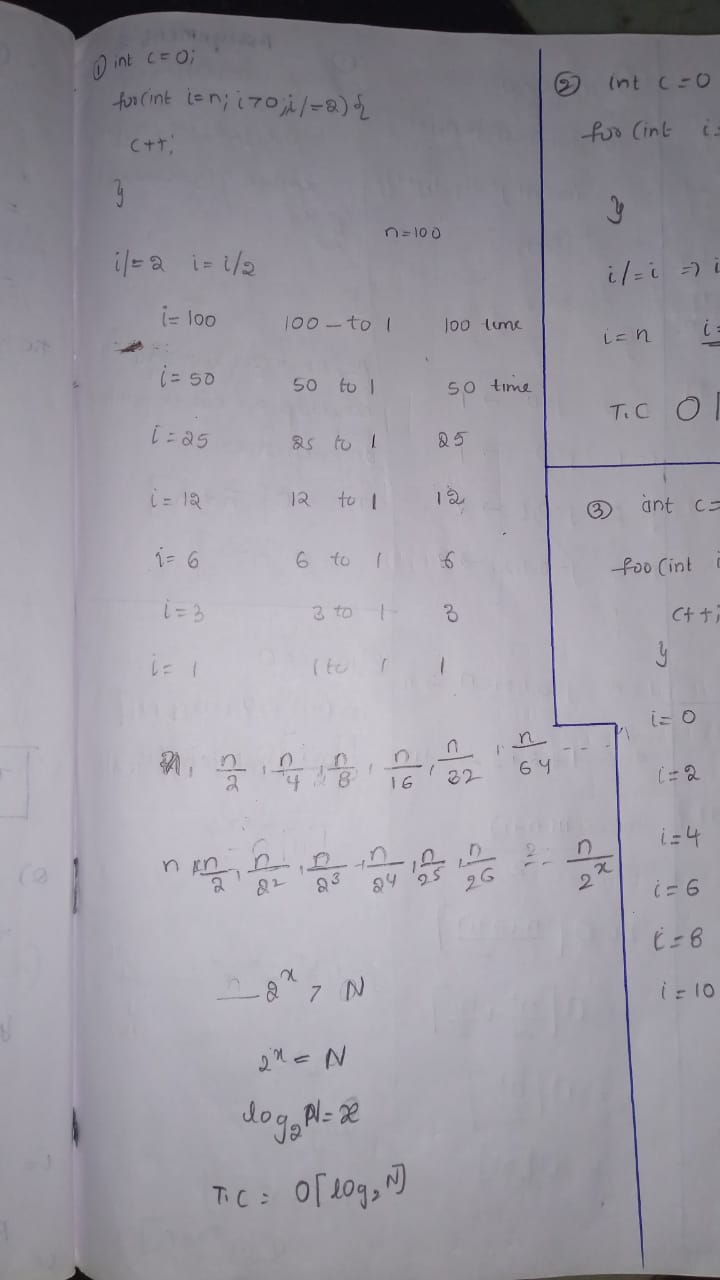 ① int c=0;
for(int i=n; i>0; i/=2){
c++;
}
n=100
i/=2 i=i/2
i=100 100 – to 1 100 time
i=50 50 to 1 50 time
i=25 25 to 1 25
i=12 12 to 1 12
i=6 6 to 1 6
i=3 3 to 1 3
i=1 1 to 1 1
n, n/2, n/4, n/8, n/16, n/32, n/64 - - -
n n/2, n/2², n/2³, n/2⁴, n/2⁵, n/2⁶ n/2ˣ
2ˣ > N
2ˣ = N
log₂N = x
T.C = O[log₂N]
② int c=0
for (int i=
}
i/=i ⇒ i
i=n i=
T.C O
③ int c=
for (int i
c++;
}
i=0
i=2
i=4
i=6
i=8
i=10